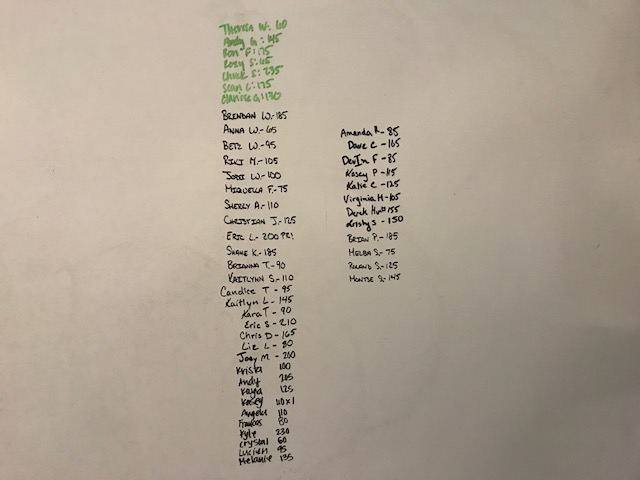 Theresa W: 60
Andy G: 145
Ron F: 175
Rozy S: 65
Chuck S: 235
Sean C: 175
Clarise G: 130
BRENDAN W.-185
ANNA W.-65
BETZ W.-95
RIKI M.-105
JODI W.-100
MIQUELLA F.-75
SHERRY A.-110
CHRISTIAN J.-125
ERIC L.-200 PR!
SHANE K.-185
BRIANNA T.-90
KAITLYNN S.-110
Candice T - 95
Kaitlyn L - 145
Kara T - 90
Eric S - 210
Chris D - 165
Liz L - 80
Joey M - 200
Krista 100
Andy 205
Kayla 125
Kasey 110x1
Angela 110
Frances 80
Kyle 230
Crystal 60
Lucien 95
Melanie 135
Amanda R - 85
Dave C - 165
Devin F - 85
Kasey P - 115
Katie C - 125
Virginia H - 105
Derek 155
Kristy S - 150
BRIAN P.-185
MELBA S.-75
ROLAND S.-125
MONTSE S.-145